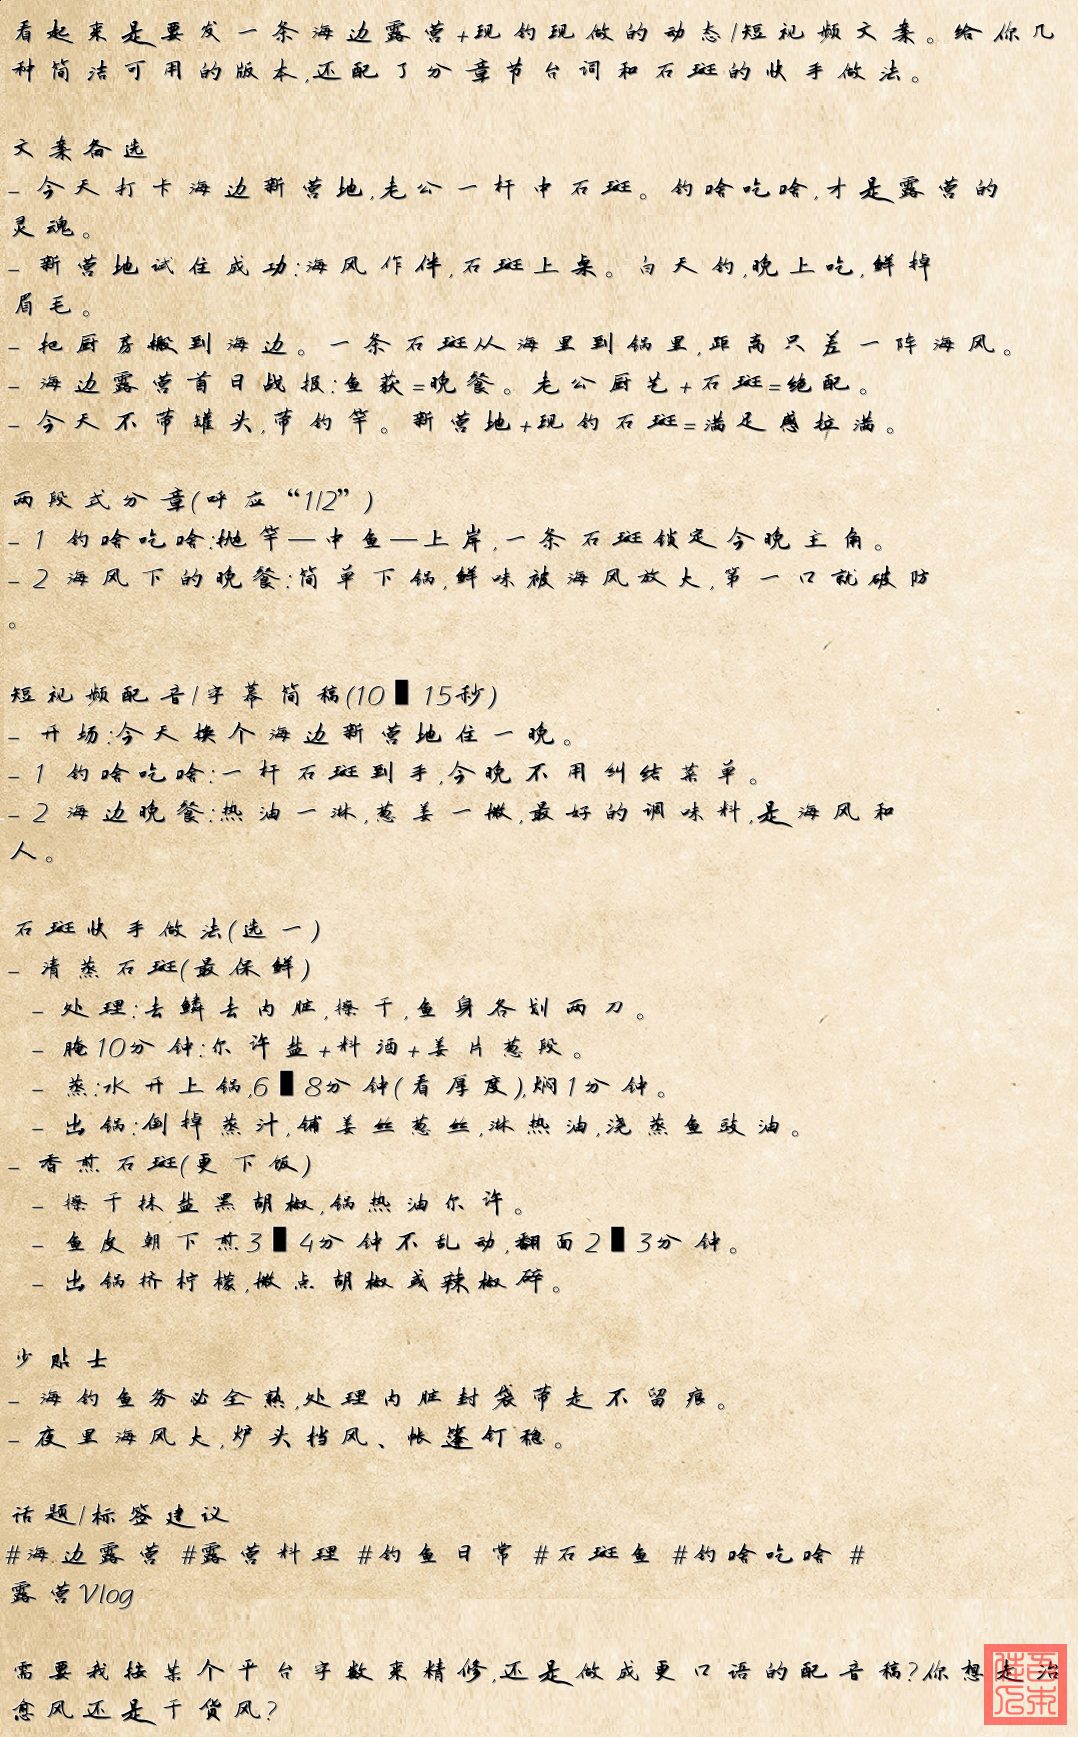 看起来是要发一条海边露营+现钓现做的动态/短视频文案。给你几
种简洁可用的版本,还配了分章节台词和石斑的快手做法。
文案备选
- 今天打卡海边新营地,老公一杆中石斑。钓啥吃啥,才是露营的
灵魂。
- 新营地试住成功:海风作伴,石斑上桌。白天钓,晚上吃,鲜掉
眉毛。
- 把厨房搬到海边。一条石斑从海里到锅里,距离只差一阵海风。
- 海边露营首日战报:鱼获=晚餐。老公厨艺+石斑=绝配。
- 今天不带罐头,带钓竿。新营地+现钓石斑=满足感拉满。
两段式分章(呼应“1/2”)
- 1 钓啥吃啥:抛竿—中鱼—上岸,一条石斑锁定今晚主角。
- 2 海风下的晚餐:简单下锅,鲜味被海风放大,第一口就破防
。
短视频配音/字幕简稿(10▮15秒)
- 开场:今天换个海边新营地住一晚。
- 1 钓啥吃啥:一杆石斑到手,今晚不用纠结菜单。
- 2 海边晚餐:热油一淋,葱姜一撒,最好的调味料,是海风和
人。
石斑快手做法(选一)
- 清蒸石斑(最保鲜)
- 处理:去鳞去内脏,擦干,鱼身各划两刀。
- 腌10分钟:少许盐+料酒+姜片葱段。
- 蒸:水开上锅,6▮8分钟(看厚度),焖1分钟。
- 出锅:倒掉蒸汁,铺姜丝葱丝,淋热油,浇蒸鱼豉油。
- 香煎石斑(更下饭)
- 擦干抹盐黑胡椒,锅热油少许。
- 鱼皮朝下煎3▮4分钟不乱动,翻面2▮3分钟。
- 出锅挤柠檬,撒点胡椒或辣椒碎。
小贴士
- 海钓鱼务必全熟,处理内脏封袋带走不留痕。
- 夜里海风大,炉头挡风、帐篷钉稳。
话题/标签建议
#海边露营 #露营料理 #钓鱼日常 #石斑鱼 #钓啥吃啥 #
露营Vlog
需要我按某个平台字数来精修,还是做成更口语的配音稿?你想走治
愈风还是干货风?